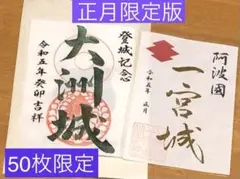 正月限定版
登城記念
大洲城
令和五年癸卯吉祥
阿波國
一宮城
令和五年 正月
50枚限定